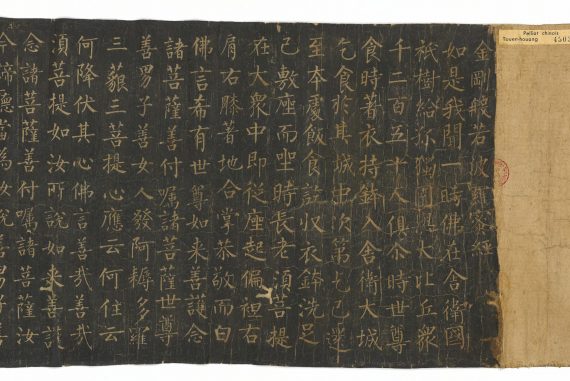 金剛般若波羅蜜經
如是我聞一時佛在舍衛國
祇樹給孤獨園與大比丘衆
千二百五十人俱尒時世尊
食時著衣持鉢入舍衛大城
乞食於其城中次第乞已還
至本處飯食訖収衣鉢洗足
已敷座而坐時長老須菩提
在大衆中即從座起偏袒右
肩右膝著地合掌恭敬而白
佛言希有世尊如来善護念
諸菩薩善付囑諸菩薩世尊
善男子善女人發阿耨多羅
三藐三菩提心應云何住云
何降伏其心佛言善哉善哉
須菩提如汝所說如来善護
念諸菩薩善付囑諸菩薩汝
今諦聽當為汝說善男子善
Pelliot chinois
Touen-houang 4503